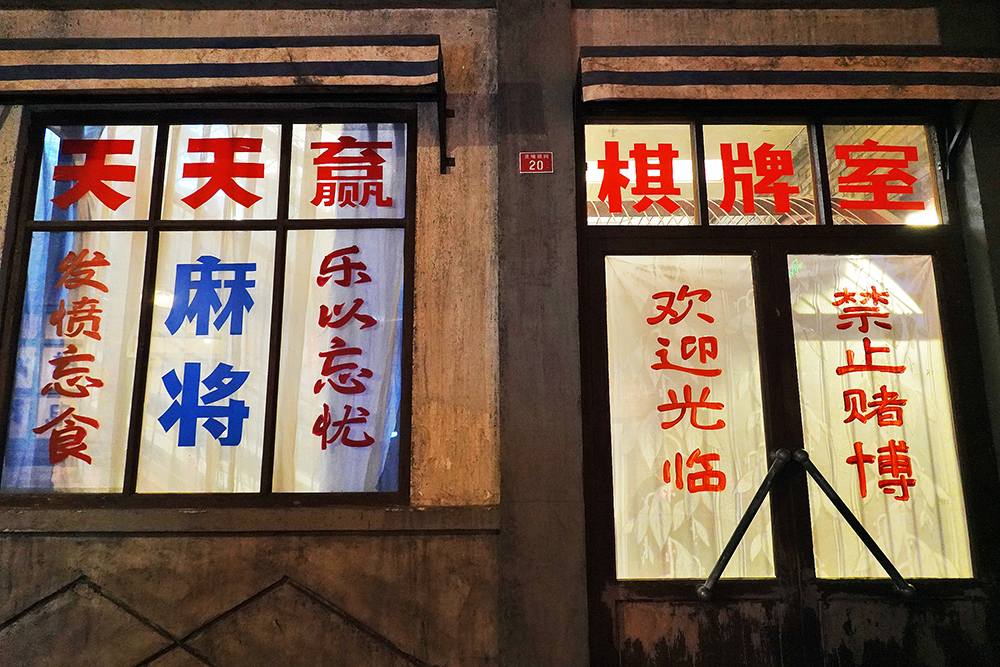 天天赢
发愤忘食
麻将
乐以忘忧
20
棋牌室
欢迎光临
禁止赌博